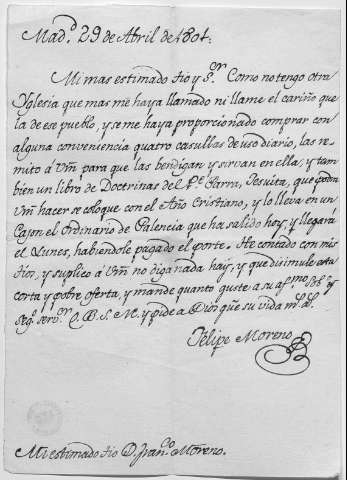 Mad.ᵈ 29 de Abril de 1801.
Mi mas estimado tio y S.ᵒʳ Como no tengo otra
Yglesia que mas me haya llamado ni llame el cariño que
la de ese pueblo, y se me haya proporcionado comprar con
alguna conveniencia quatro casullas de uso diario, las re-
mito á Vm̃ para que las bendigan y sirvan en ella, y tam
bien un libro de Doctrinas del P.ᵉ Parra, Jesuita, que podra
Vm̃ hacer se coloque con el Año Cristiano, y lo lleva en un
Cajon el Ordinario de Palencia que ha salido hoy, y llegara
el Lunes, habiendole pagado el porte. He contado con mis
tios, y suplico á Vm̃ no diga nada hay, y que disimule esta
corta y pobre oferta, y mande quanto guste a su af.ᵐᵒ Sob.ⁿᵒ y
Seg.ᵒ serv.ᵒʳ Q. B. S. M. y pide a Dios gũe su vida m.ˢ a.ˢ
Felipe Moreno
Mi estimado tio D. Fran.ᶜᵒ Moreno.